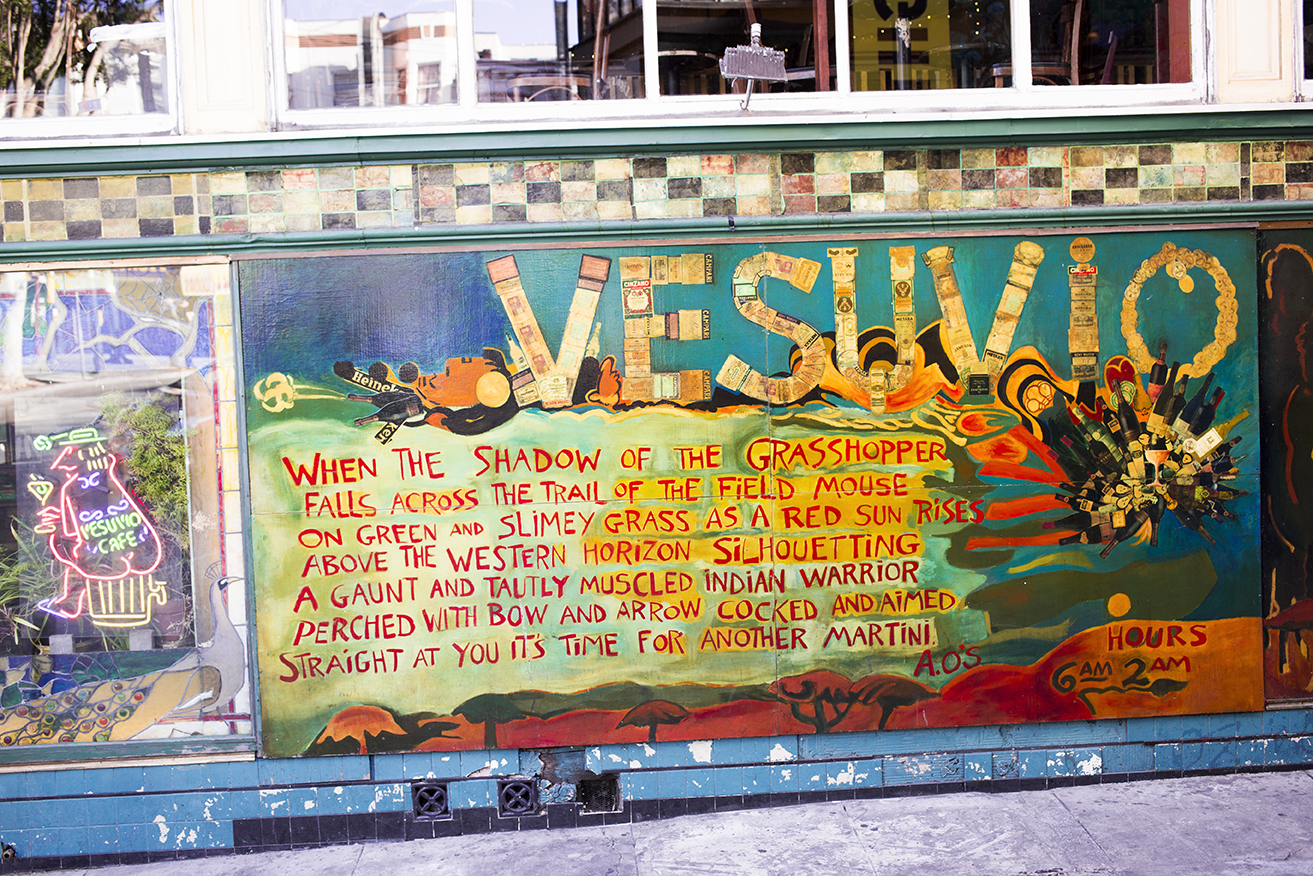 VESUVIO
CINZANO
CAMPARI
CAMPARI
CAMPARI
CINZANO
METAXA
METAXA
Heineken
VESUVIO
CAFE
WHEN THE SHADOW OF THE GRASSHOPPER
FALLS ACROSS THE TRAIL OF THE FIELD MOUSE
ON GREEN AND SLIMEY GRASS AS A RED SUN RISES
ABOVE THE WESTERN HORIZON SILHOUETTING
A GAUNT AND TAUTLY MUSCLED INDIAN WARRIOR
PERCHED WITH BOW AND ARROW COCKED AND AIMED
STRAIGHT AT YOU IT'S TIME FOR ANOTHER MARTINI.
A.O'S
HOURS
6AM 2AM